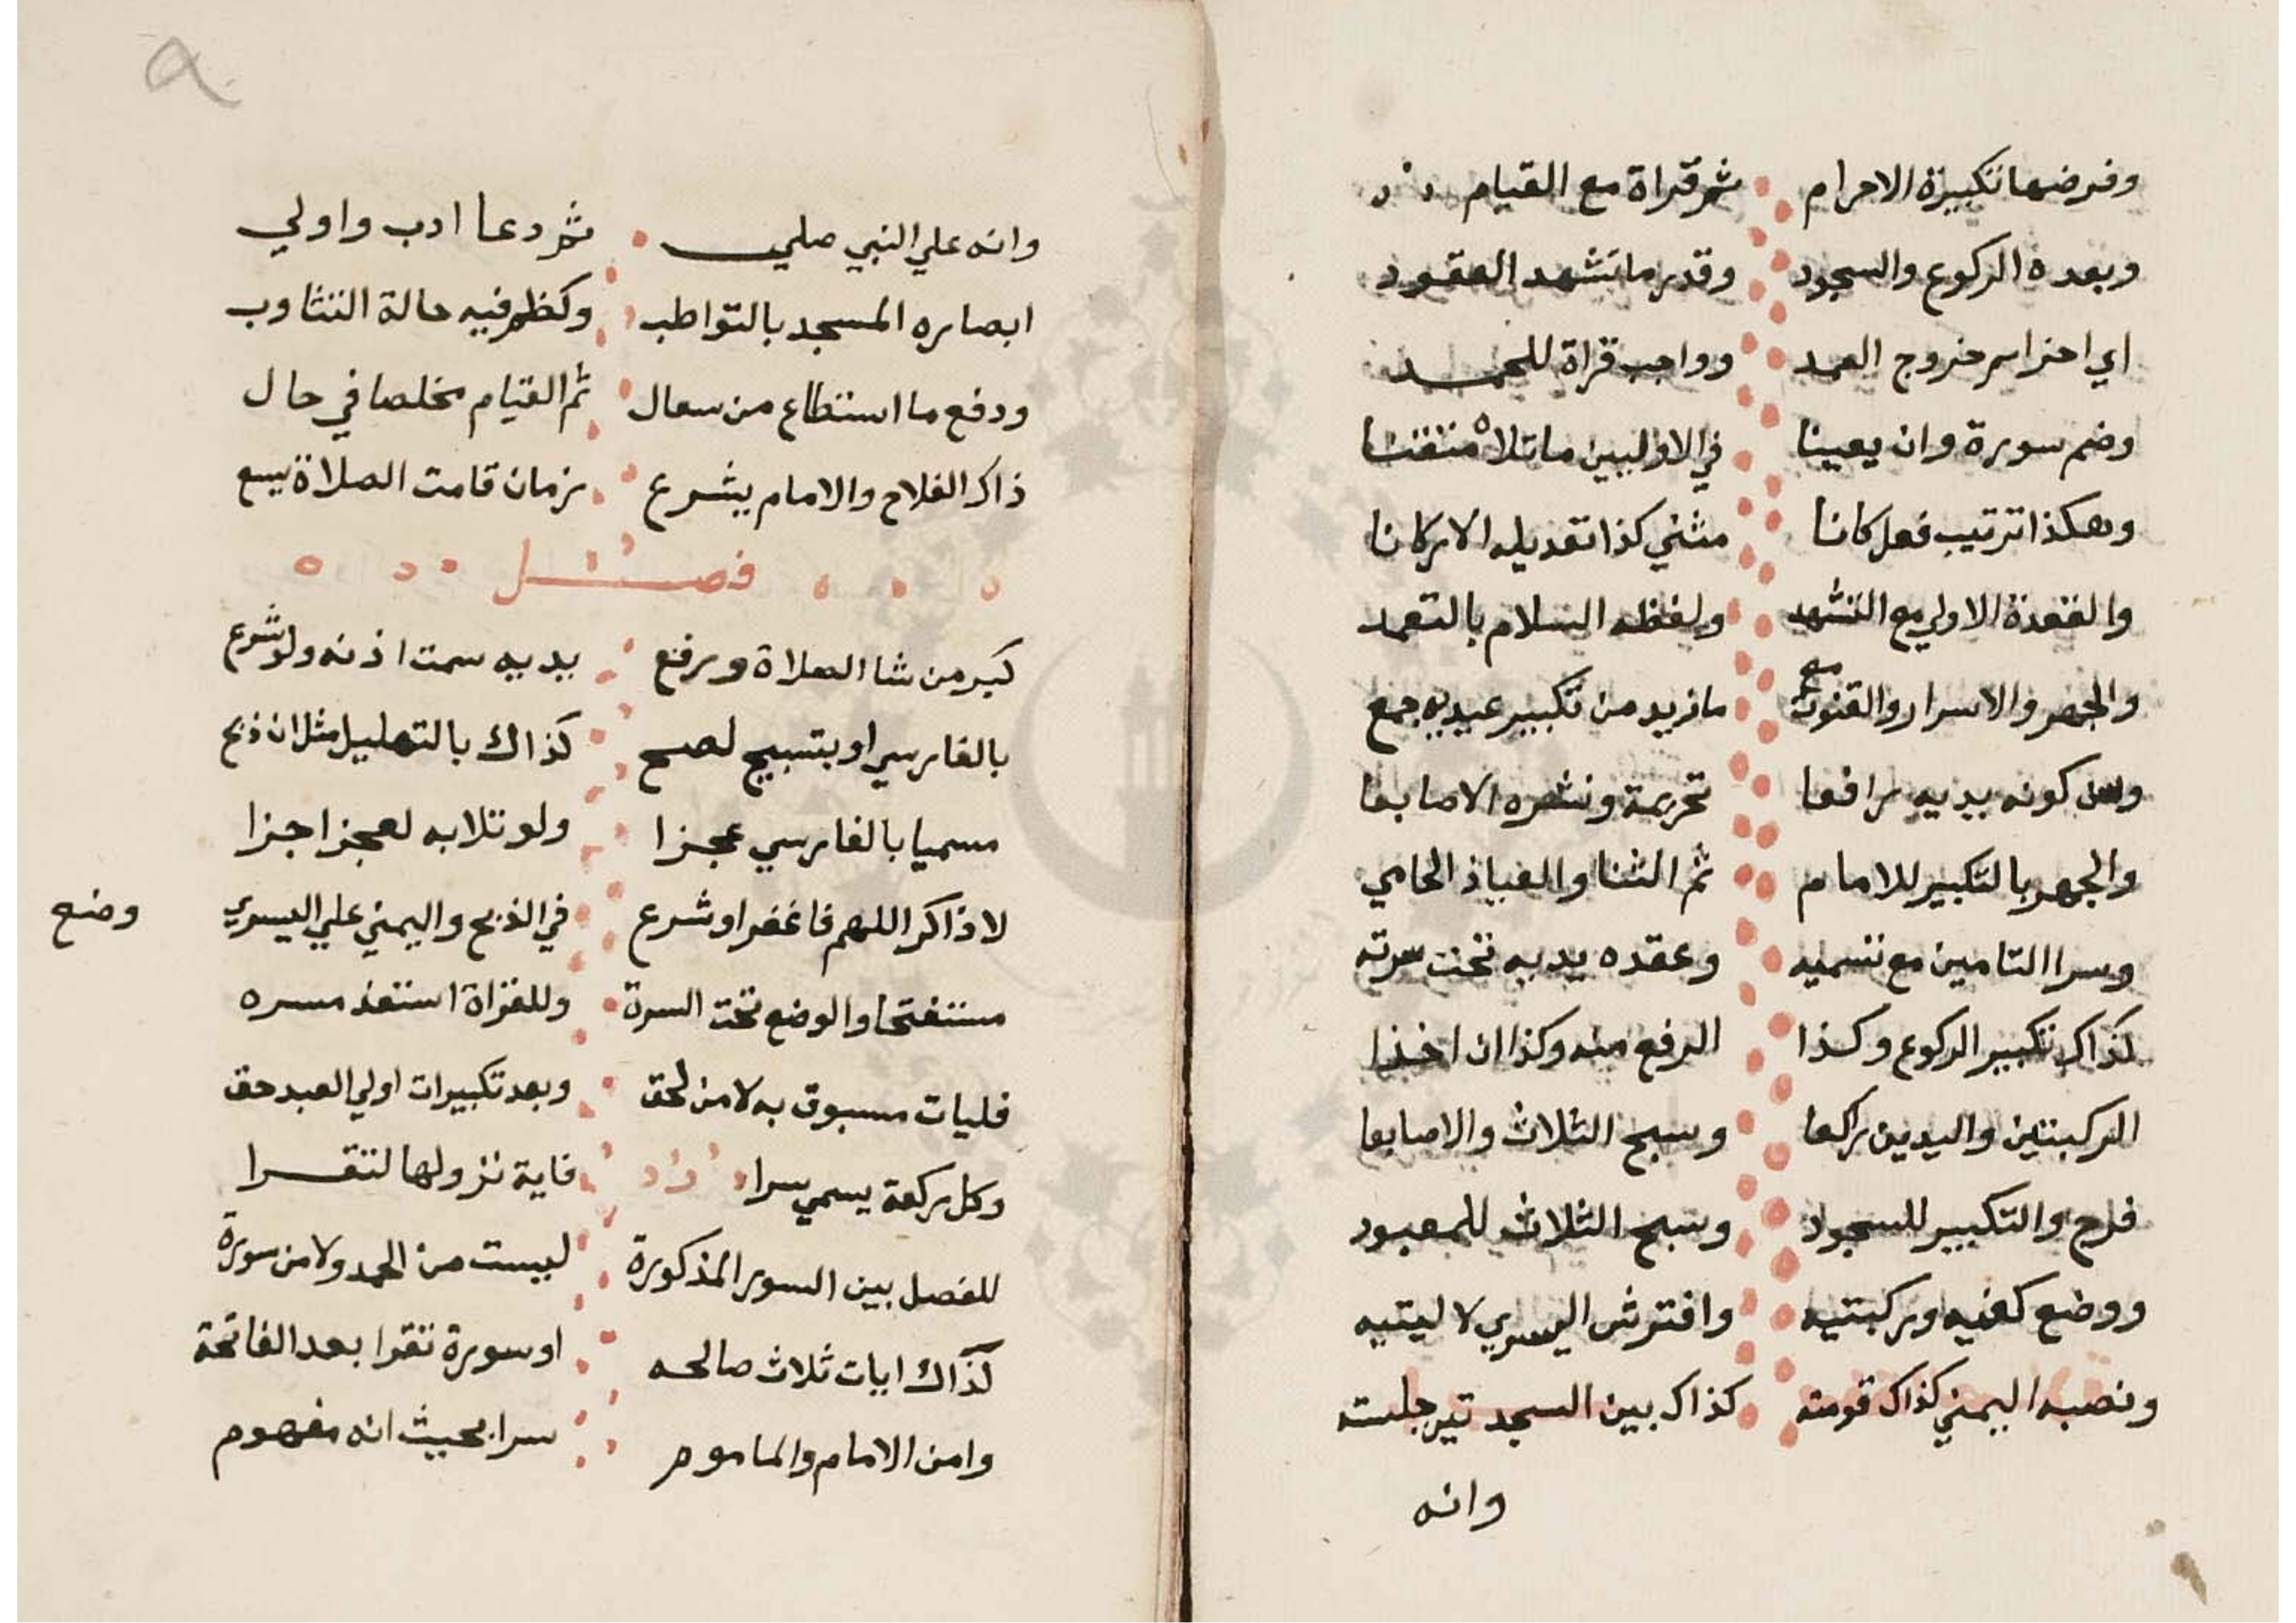 وفرضها تكبيرة الاحرام ثم قراة مع القيام
وبعده الركوع والسجود وقدر ما تشهد العقود
اي اخرا ثم خروج العمد وواجب قراة للحمد
وضم سورة وان يعينا في الاوليين ما تلاه متقنا
وهكذا ترتيب فعل كانا مثني كذا تعديله الاركانا
والقعدة الاولي مع التشهد ولفظه السلام بالتعمد
والجهر والاسرار والقنوت مع ما زيد من تكبير عيديه جمع
وسن كونه يديه رافعا تحريمة ونشره الاصابعا
والجهر بالتكبير للامام ثم الثنا والعياذ الحامي
وسرا التامين مع تسميه وعقده يديه تحت سرته
كذاك تكبير الركوع وكذا الرفع منه وكذا ان اخذا
الركبتين واليدين راكعا وسبح الثلاث والاصابعا
فرج والتكبير للسجود وسبح الثلاث للمعبود
ووضع كفيه وركبتيه وافترش اليسري لا ليتيه
ونصبه اليمني كذاك قومته كذاك بين السجد تين جلسته
وانه
وانه علي النبي صلي ثم دعا ادب واولي
ابصاره المسجد بالتواطب وكظم فيه حالة التثاوب
ودفع ما استطاع من سعال ثم القيام مخلصا في حال
ذاكر الفلاح والامام يشرع بزمان قامت الصلاة يسع
فصل
كبر من شا الصلاة ورفع يديه سمت اذنه ولو شرع
بالفارسي او بتسبيح لصح كذاك بالتهليل مثل ان ذبح
مسميا بالفارسي عجزا ولو تلا به لعجز اجزا
لا ذاكر اللهم فاغفر او شرع في الذبح واليمني علي اليسري وضع
مستفتحا والوضع تحت السرة وللقراة استعذ مسره
فليات مسبوق به لا من لحق وبعد تكبيرات اولي العبد حق
وكل ركعة يسمي سرا فاية نزولها لتقرا
للفصل بين السور المذكورة ليست من الحمد ولا من سورة
كذاك ايات ثلاث صالحه او سورة تقرا بعد الفاتحة
وامن الامام والماموم سرا بحيث انه مفهوم